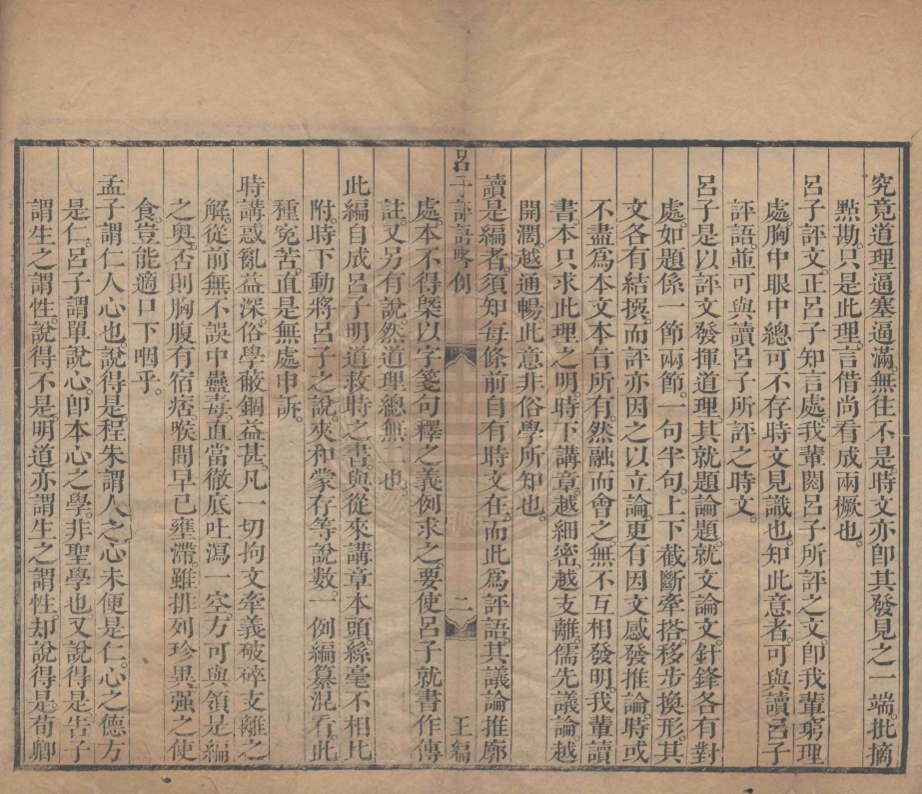 究竟道理逼塞逼滿。無往不是。時文亦卽其發見之一端。批摘
㸃勘。只是此理。言借尚看成兩橛也。
呂子評文。正呂子知言處。我輩閱呂子所評之文。卽我輩窮理
處。胸中眼中總可不存時文見識也。知此意者。可與讀呂子
評語。並可與讀呂子所評之時文。
呂子是以評文發揮道理。其就題論題。就文論文。針鋒各有對
處。如題係一節兩節。一句半句。上下截斷牽搭。移步換形。其
文各有結撰。而評亦因之以立論。更有因文感發推論。時或
不盡爲本文本旨所有。然融而會之。無不互相發明。我輩讀
書。本只求此理之明。時下講章。越細密。越支離。儒先議論。越
開濶。越通暢。此意非俗學所知也。
讀是編者。須知每條前自有時文在。而此爲評語。其議論推廓
呂子評語略例
二
王編
處。本不得槩以字箋句釋之義例求之。要使呂子就書作傳
註。又另有說。然道理總無二也。
此編自成呂子明道救時之書。與從來講章本頭。絲毫不相比
附。時下動將呂子之說。夾和蒙存等說數。一例編纂混看。此
種寃苦。直是無處申訴。
時講惑亂益深。俗學蔽錮益甚。凡一切拘文牽義破碎支離之
解。從前無不誤中蠱毒。直當徹底吐瀉一空。方可與領是編
之奧。否則胸腹有宿痞。喉間早已壅滯。雖排列珍異。强之使
食。豈能適口下咽乎。
孟子謂仁人心也。說得是。程朱謂人之心未便是仁。心之德方
是仁。呂子謂單說心。卽本心之學。非聖學也。又說得是。告子
謂生之謂性。說得不是。明道亦謂生之謂性。却說得是。荀卿